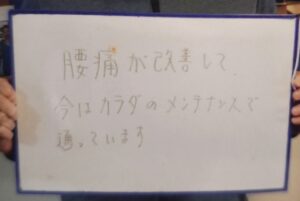 腰痛が改善して、
今はカラダのメンテナンスで
通っています